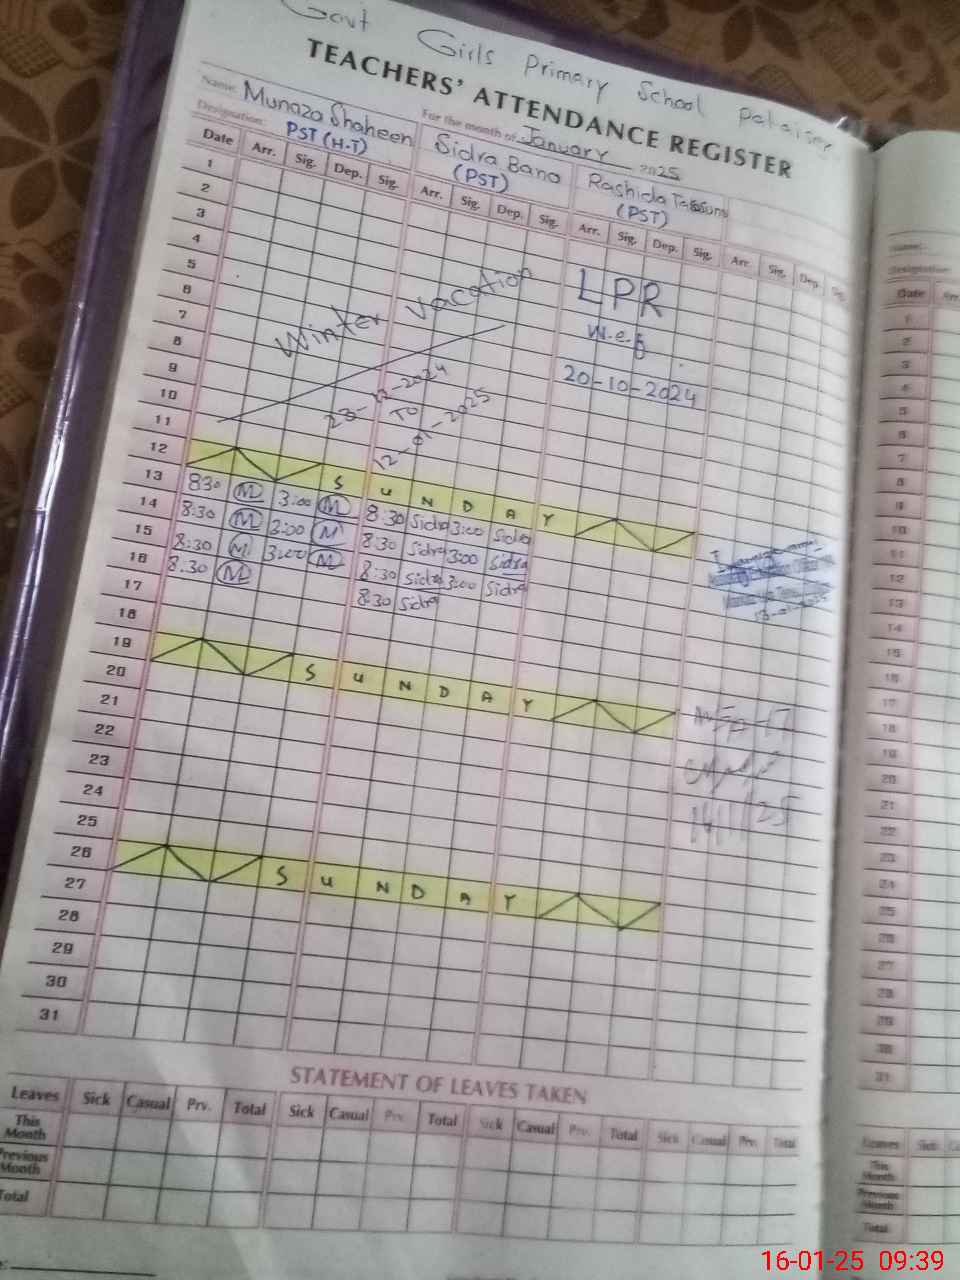 Govt Girls Primary School Palaiser
TEACHERS' ATTENDANCE REGISTER
For the month of January 2025
Name: Munaza Shaheen Sidra Bano Rashida
Designation: PST (H-T) (PST) (PST)
Date Arr. Sig. Dep. Sig. Arr. Sig. Dep. Sig. Arr. Sig. Dep. Sig. Arr. Sig. Dep. Sig.
1
2
3
4
5
6
7
8
9
10
11
Winter Vacation
23-12-2024
TO
12-01-2025
LPR
w.e.f
20-10-2024
12 SUNDAY
13 8:30 M 3:00 M 8:30 Sidra 3:00 Sidra
14 8:30 M 3:00 M 8:30 Sidra 3:00 Sidra
15 8:30 M 3:00 M 8:30 Sidra 3:00 Sidra
16 8:30 M 8:30 Sidra
17
18
19 SUNDAY
20
21
22
23
24
25
26 SUNDAY
27
28
29
30
31
14/1/25
STATEMENT OF LEAVES TAKEN
Leaves Sick Casual Prv. Total Sick Casual Prv. Total Sick Casual Prv. Total Sick Casual Prv. Total
This Month
Previous Month
Total
Name:
Designation
Date Arr
1
2
3
4
5
6
7
8
9
10
11
12
13
14
15
16
17
18
19
20
21
22
23
24
25
26
27
28
29
30
31
Leaves Sick
This Month
Previous Month
Total
16-01-25 09:39